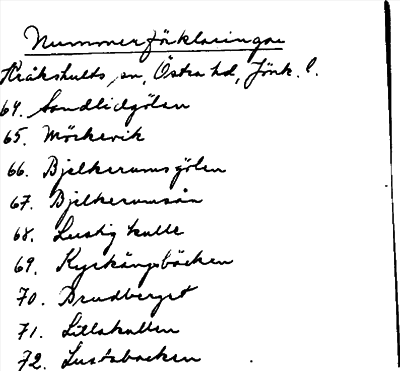 Nummerförklaringar
Kråkshults sn, Östra hd, Jönk. l.
64. Sandlidgölen
65. Mörkevik
66. Bjelkerumsgölen
67. Bjelkerumsån
68. Lustig kulle
69. Kyrkängsbäcken
70. Brudberget
71. Lillakullen
72. Lustabacken